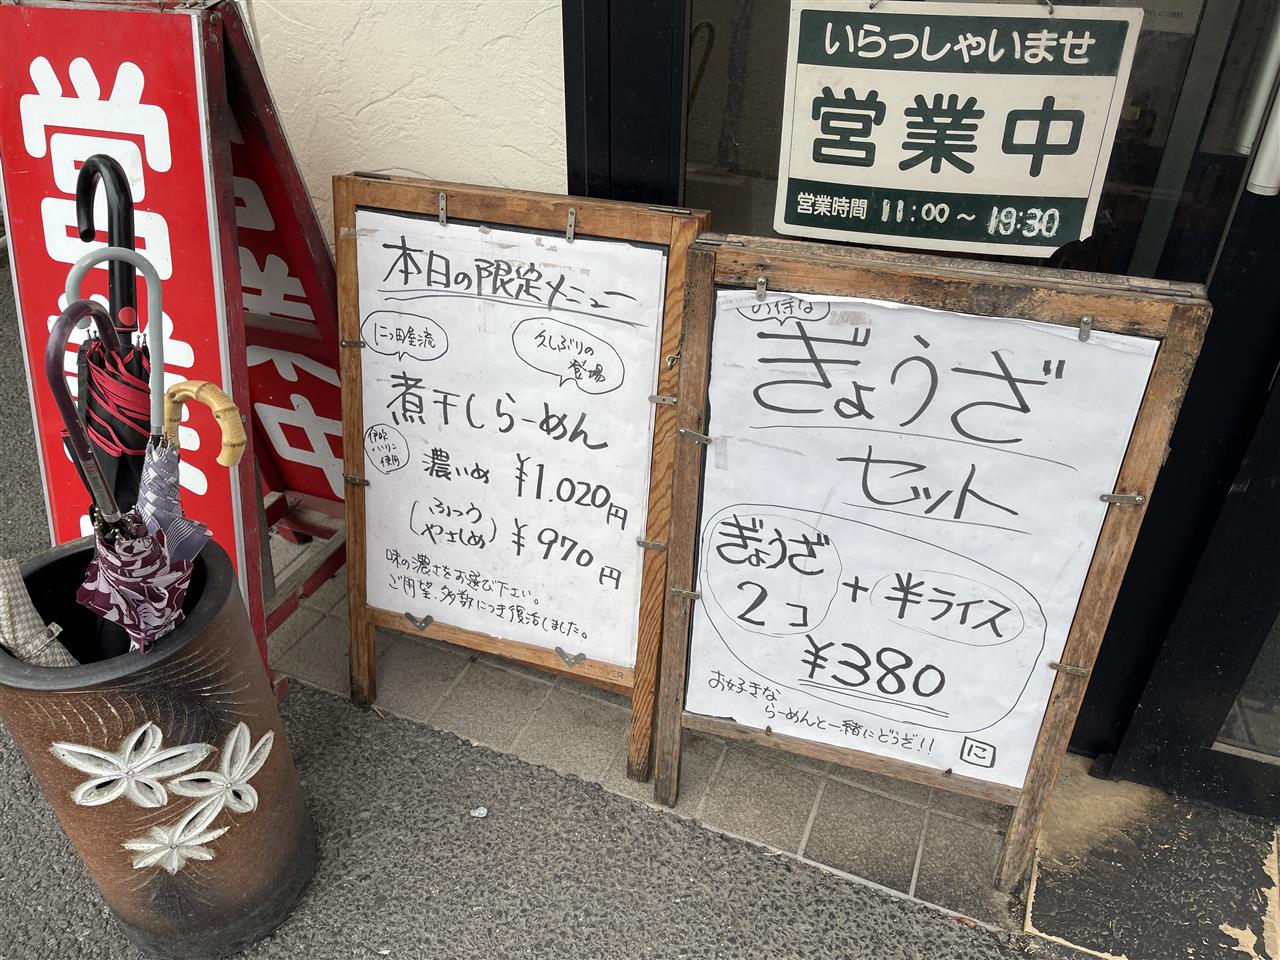 営業中
いらっしゃいませ
営業中
営業時間 11:00～19:30
本日の限定メニュー
にっ田屋流
久しぶりの
登場
煮干しらーめん
伊吹
いりこ
使用
濃いめ ¥1.020円
(ふつう
やさしめ) ¥970円
味の濃さをお選び下さい。
ご用望、多数につき復活しました。
お得な
ぎょうざ
セット
ぎょうざ
2コ
+ 半ライス
¥380
お好きな
らーめんと一緒にどうぞ!!
に